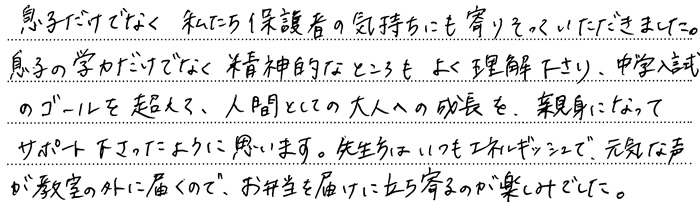 息子だけでなく 私たち保護者の気持ちにも寄りそっていただきました。
息子の学力だけでなく精神的なところもよく理解下さり、中学入試
のゴールを超えて、人間としての大人への成長を、親身になって
サポート下さったように思います。先生方はいつもエネルギッシュで、元気な声
が教室の外に届くので、お弁当を届けに立ち寄るのが楽しみでした。